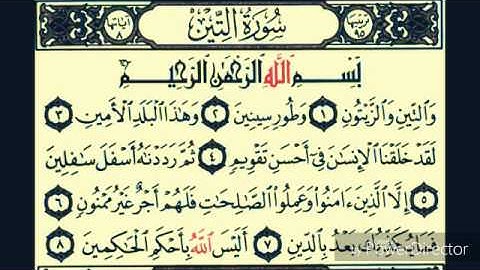 ترتيبها ٩٥ سُورَةُ التِّينِ آياتها ٨
بِسْمِ اللَّهِ الرَّحْمَٰنِ الرَّحِيمِ
وَالتِّينِ وَالزَّيْتُونِ ١ وَطُورِ سِينِينَ ٢ وَهَٰذَا الْبَلَدِ الْأَمِينِ ٣
لَقَدْ خَلَقْنَا الْإِنسَانَ فِي أَحْسَنِ تَقْوِيمٍ ٤ ثُمَّ رَدَدْنَاهُ أَسْفَلَ سَافِلِينَ
٥ إِلَّا الَّذِينَ ءَامَنُوا وَعَمِلُوا الصَّالِحَاتِ فَلَهُمْ أَجْرٌ غَيْرُ مَمْنُونٍ ٦
فَمَا يُكَذِّبُكَ بَعْدُ بِالدِّينِ ٧ أَلَيْسَ اللَّهُ بِأَحْكَمِ الْحَاكِمِينَ ٨
PowerDirector